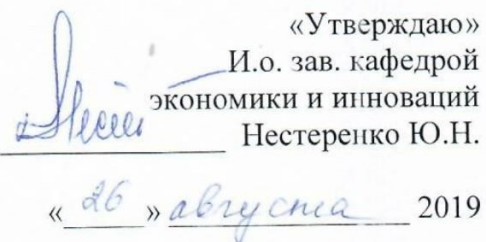 «Утверждаю»
И.о. зав. кафедрой
экономики и инноваций
Нестеренко Ю.Н.
«26» августа 2019